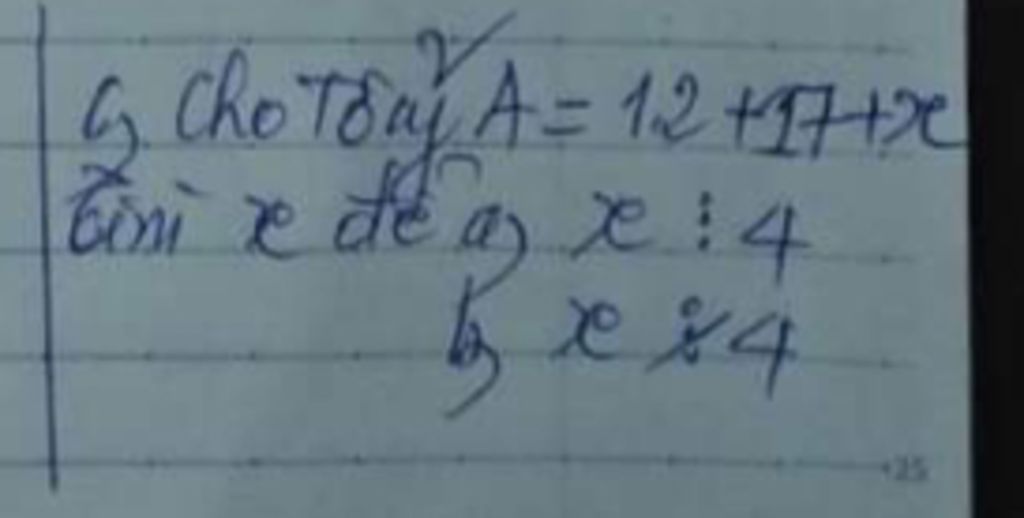 c, Cho Tổng A = 12 + 17 + x
tìm x để a, x ⋮ 4
b, x ⋮̸ 4
25